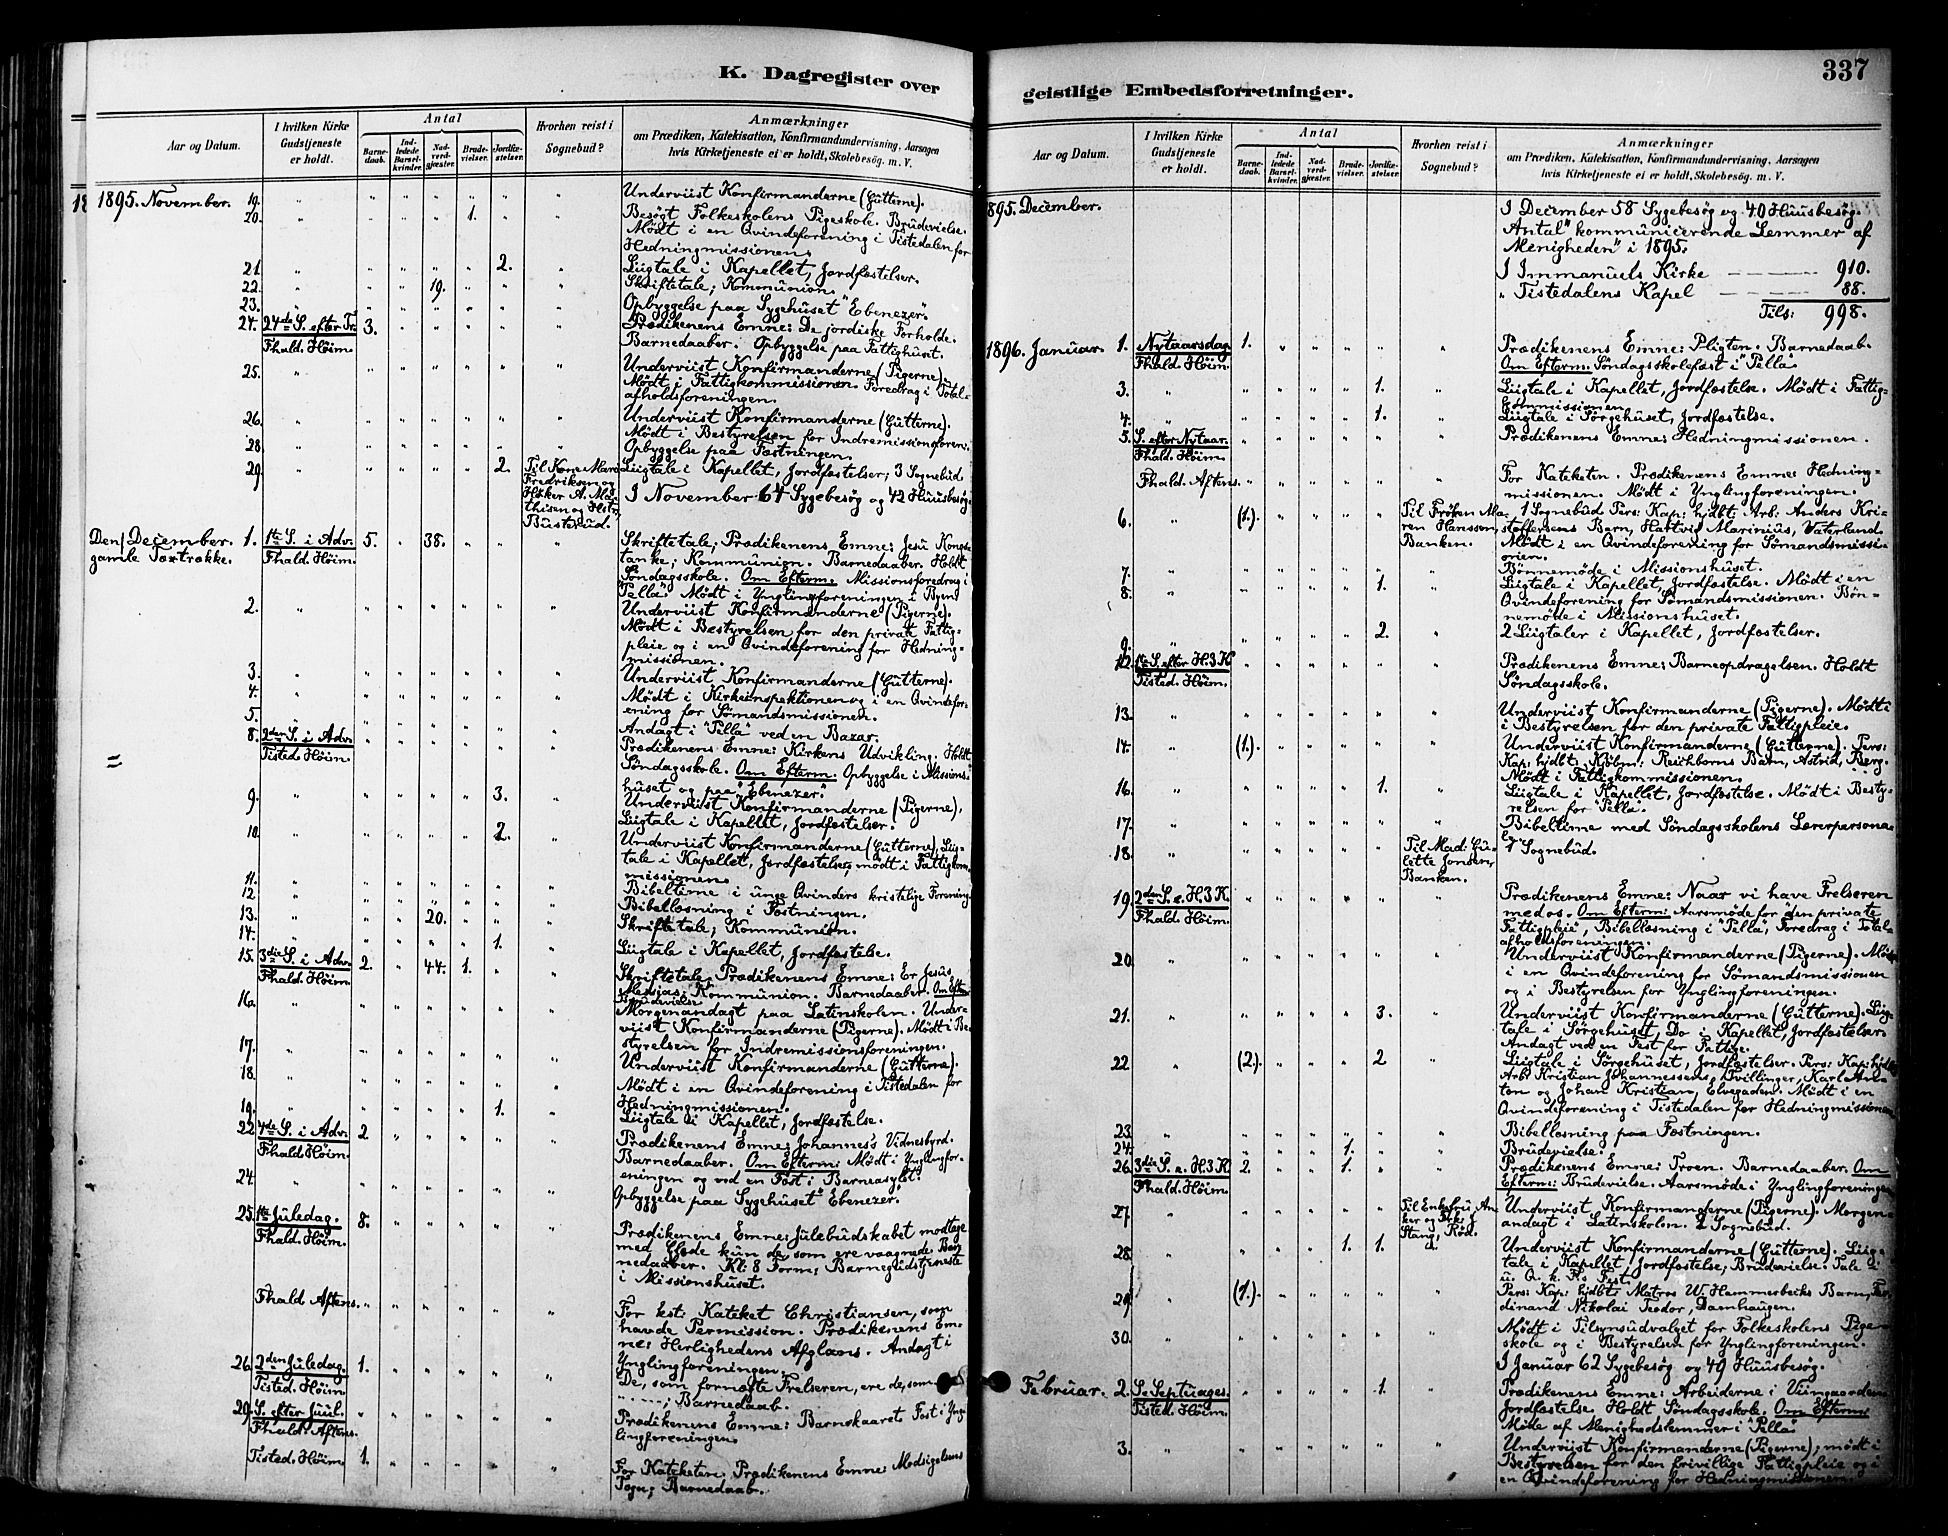 K. Dagregister over
Aar og Datum.
I hvilken Kirke Gudstjeneste er holdt.
Antal
Barnedaab.
Indledede Barselkvinder.
Nadverdgjæster.
Brudevielser.
Jordfæstelser.
Hvorhen reist i Sognebud?
Anmærkninger
om Prædiken, Katekisation, Konfirmandundervisning, Aarsagen
hvis Kirketjeneste ei er holdt, Skolebesøg. m. V.
1895. November. 19. Underviist Konfirmanderne (Gutterne).
20. 1. Besøgt Folkeskolens Pigeskole. Brudevielse.
Mødt i en Qvindeforening i Tistedalen for
Hedningmissionen.
21. 2. Liigtale i Kapellet, Jordfæstelser.
22. 19. Skriftetale; Kommunion.
23. Opbyggelse paa Sygehuset "Ebenezer".
24. 24de S. efter Tr. 3. Prædikenens Emne: De jordiske Forholde.
Fhald. Høim. Barnedaaber. Opbyggelse paa Fattighuset.
25. Underviist Konfirmanderne (Pigerne).
Mødt i Fattigkommissionen. Foredrag i Total-
afholdsforeningen.
26. Underviist Konfirmanderne (Gutterne).
Mødt i Bestyrelsen for Indremissionsforen.
28. Opbyggelse paa Fæstningen.
29. 2. Til Kone Maro Liigtale i Kapellet, Jordfæstelser; 3 Sognebud
Fredriksen og
Høker A. Ma-
thisen og Hstr.
Busterud.
I November 64 Sygebesøg og 42 Huusbesøg.
Den/December. 1. 1ste S. i Adv. 5. 38. Skriftetale; Prædikenens Emne: Jesu Konge-
gamle Textrække. Fhald. Høim. tanke; Kommunion. Barnedaaber. Holdt
Søndagsskole. Om Efterm. Missionsforedrag i
"Pella" Mødt i Ynglingforeningen i Byen
2. Underviist Konfirmanderne (Pigerne).
Mødt i Bestyrelsen for den private Fattig-
pleie og i en Qvindeforening for Hedning-
missionen.
3. Underviist Konfirmanderne (Gutterne).
4. Mødt i Kirkeinspektionen og i en Qvindefor-
ening for Sømandsmissionen.
5. Andagt i "Pella" ved en Bazar.
8. 2den S. i Adv. Prædikenens Emne: Kirkens Udvikling. Holdt
Tisted. Høim. Søndagsskole. Om Efterm. Opbyggelse i Missions-
huset og paa "Ebenezer".
9. 3. Underviist Konfirmanderne (Pigerne).
Liigtale i Kapellet, Jordfæstelser.
10. 2. Underviist Konfirmanderne (Gutterne), Liig-
tale i Kapellet, Jordfæstelser, mødt i Fattigkom-
missionen.
11. Bibeltime i unge Qvinders kristelige Forening.
12 Bibellæsning i Fæstningen.
13. 20. Skriftetale, Kommunion.
14. 1. Liigtale i Kapellet, Jordfæstelse.
15. 3die S. i Adv. 2. 44. 1. Skriftetale. Prædikenens Emne: Er Jesus
Fhald. Høim. Messias; Kommunion. Barnedaaber. Om Efterm.
Brudevielse
16. Morgenandagt paa Latinskolen. Under-
viist Konfirmanderne (Pigerne). Mødt i Be-
styrelsen for Indremissionsforeningen.
17. Underviist Konfirmanderne (Gutterne).
18. Mødt i en Qvindeforening i Tistedalen for
Hedningmissionen.
19. 1. Liigtale i Kapellet, Jordfæstelse.
22 4de S. i Adv. 2 Prædikenens Emne: Johannes's Vidnesbyrd.
Fhald Høim. Barnedaaber. Om Efterm: Mødt i Ynglingfor-
eningen og ved en Fest i Barneasylet.
24. Opbyggelse paa Sygehuset "Ebenezer".
25. 1ste Juledag. 8. Prædikenens Emne: Julebudskabet modtage
Fhald. Høim. med Glæde kun de, som ere vaagnede. Bar-
nedaaber. Kl: 8 Form; Barnegudstjeneste
i Missionshuset.
Fhald Aftens. For est. Kateket Christiansen, som
havde Permission. Prædikenens Em-
ne: Herlighedens Afglans. Andagt i
Ynglingforeningen.
26. 2den Juledag. 1. De, som fornægte Frelseren, ere de, som
Tisted. Høim ; Barnedaab.
29. S. efter Juul. Prædikenens Emne: Barnskaarets Fest i Yng-
Fhald: Aftens. lingforeningen.
Tisted. Høim. 1. For Kateketen. Prædikenens Emne: Modsigelsens
Tegn; Barnedaab.
geistlige Embedsforretninger.
337
Aar og Datum.
I hvilken Kirke Gudstjeneste er holdt.
Antal
Barnedaab.
Indledede Barselkvinder.
Nadverdgjæster.
Brudevielser.
Jordfæstelser.
Hvorhen reist i Sognebud?
Anmærkninger
om Prædiken, Katekisation, Konfirmandundervisning, Aarsagen
hvis Kirketjeneste ei er holdt, Skolebesøg. m. V.
1895. December. I December 58 Sygebesøg og 40 Huusbesøg.
Antal "kommunicerende Lemmer af
Menigheden" i 1895.
I Immanuels Kirke 910.
" Tistedalens Kapel 88.
Tils: 998.
1896. Januar. 1. Nytaarsdag 1. Prædikenens Emne: Pligten. Barnedaab.
Fhald Høim. Om Efterm: Søndagsskolefest i "Pella"
3. 1. Liigtale i Kapellet, Jordfæstelse. Mødt i Fattig-
kommissionen.
4. 1. Liigtale i Sørgehuset, Jordfæstelse.
5. S. efter Nytaar. Prædikenens Emne: Hedningmissionen.
Fhald. Høim.
Fhald. Aftens. For Kateketen. Prædikenens Emne: Hedning-
missionen. Mødt i Ynglingforeningen.
6. (1.) Til Frøken Ma- 1 Sognebud Pers: Kap: hjdbt. Arb. Anders Kri-
ren Hanssen, stoffersens Barn, Hartvig Marinius, Vaterland
Banken. Mødt i en Qvindeforening for Sømandsmissi-
onen.
7. Bønnemøde i Missionshuset.
8. 1. Liigtale i Kapellet, Jordfæstelse. Mødt i en
Qvindeforening for Sømandsmissionen. Bøn-
nemøde i Missionshuset.
9. 2. 2 Liigtaler i Kapellet, Jordfæstelser.
12. 1ste S. efter H.3.K. Prædikenens Emne: Barneopdragelsen. Holdt
Tisted. Høim. Søndagsskole.
13. Underviist Konfirmanderne (Pigerne). Mødt i
i Bestyrelsen for den private Fattigpleie.
14. (1.) Underviist Konfirmanderne (Gutterne). Pers:
Kap: hjdbt. Kjøbm: Reichborns Barn, Astrid, Berg.
Mødt i Fattigkommissionen.
16. 1. Liigtale i Kapellet, Jordfæstelse. Mødt i Besty-
relsen for "Pella".
17. Bibeltime med Søndagsskolens Lærerpersona-
le
18. Til Mad: Gu- 1 Sognebud.
lette Jonsen,
Banken.
19. 2den S. e. H.3.K. Prædikenens Emne: Naar vi have Frelseren
Fhald. Høim. med os. Om Efterm: Aarsmøde for den private
Fattigpleie, Bibellæsning i "Pella", Foredrag i Total-
afholdsforeningen.
20. Underviist Konfirmanderne (Pigerne). Mødt
i en Qvindeforening for Sømandsmissionen
og i Bestyrelsen for Ynglingforeningen.
21. 3. Underviist Konfirmanderne (Gutterne). Liig-
tale i Sørgehuset, Do i Kapellet, Jordfæstelser.
Andagt ved en Fest for Fattige.
22 (2.) 2 Liigtale i Sørgehuset, Jordfæstelser. Pers: Kap: hjdbt.
Arb: Kristian Johannessens, Tvillinger, Karl An-
ton og Johan Kristian, Elvegaden. Mødt i en
Qvindeforening i Tistedalen for Hedningmissionen
23. Bibellæsning paa Fæstningen.
24. 1. Brudevielse.
26. 3die S. e. H.3.K. 2. 1. Prædikenens Emne: Troen. Barnedaaber. Om
Fhald. Høim. Efterm: Brudevielse. Aarsmøde i Ynglingforeningen
27. Til Enkefru An- Underviist Konfirmanderne (Pigerne). Morgen-
ker og Stang, Rød. andagt i Latinskolen. 2 Sognebud.
28. 1. 1. Underviist Konfirmanderne (Gutterne). Liig-
tale i Kapellet, Jordfæstelse, Brudevielse. Tale i
u. Q. k. F's Fest.
29. (1.) Pers: Kap: hjdbt: Matros W. Hammerbecks Barn, Fer-
dinand Nikolai Teodor, Damhaugen.
30. Mødt i Tilsynsudvalget for Folkeskolens Pige-
skole og i Bestyrelsen for Ynglingforeningen.
I Januar 62 Sygebesøg og 49 Huusbesøg.
Februar. 2. S. Septuages. 1. Prædikenens Emne: Arbeiderne i Viingaarden.
Tisted. Høim. Jordfæstelse. Holdt Søndagsskole. Om Efterm:
Møde af Menighedslemmer i "Pella"
3. Underviist Konfirmanderne (Pigerne), mødt i
Bestyrelsen for den frivillige Fattigpleie og i
en Qvindeforening for Hedningmissionen.